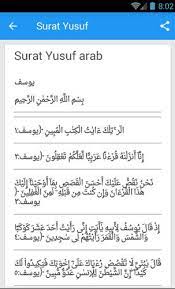 8:02
Surat Yusuf
Surat Yusuf arab
يوسف
بِسْمِ اللَّهِ الرَّحْمَٰنِ الرَّحِيمِ
الٓر ۚ تِلْكَ ءَايَٰتُ الْكِتَٰبِ الْمُبِينِ ﴿يوسف:١
إِنَّآ أَنزَلْنَٰهُ قُرْءَٰنًا عَرَبِيًّا لَّعَلَّكُمْ تَعْقِلُونَ ﴿يوسف:٢
نَحْنُ نَقُصُّ عَلَيْكَ أَحْسَنَ الْقَصَصِ بِمَآ أَوْحَيْنَآ إِلَيْكَ
هَٰذَا الْقُرْءَانَ وَإِن كُنتَ مِن قَبْلِهِ لَمِنَ الْغَٰفِلِينَ ﴿يوسف:٣
إِذْ قَالَ يُوسُفُ لِأَبِيهِ يَٰٓأَبَتِ إِنِّى رَأَيْتُ أَحَدَ عَشَرَ كَوْكَبًا
وَالشَّمْسَ وَالْقَمَرَ رَأَيْتُهُمْ لِى سَٰجِدِينَ ﴿يوسف:٤
قَالَ يَٰبُنَىَّ لَا تَقْصُصْ رُءْيَاكَ عَلَىٰٓ إِخْوَتِكَ فَيَكِيدُوا۟ لَكَ
كَيْدًا إِنَّ الشَّيْطَٰنَ لِلْإِنسَٰنِ عَدُوٌّ مُّبِينٌ ﴿يوسف:٥